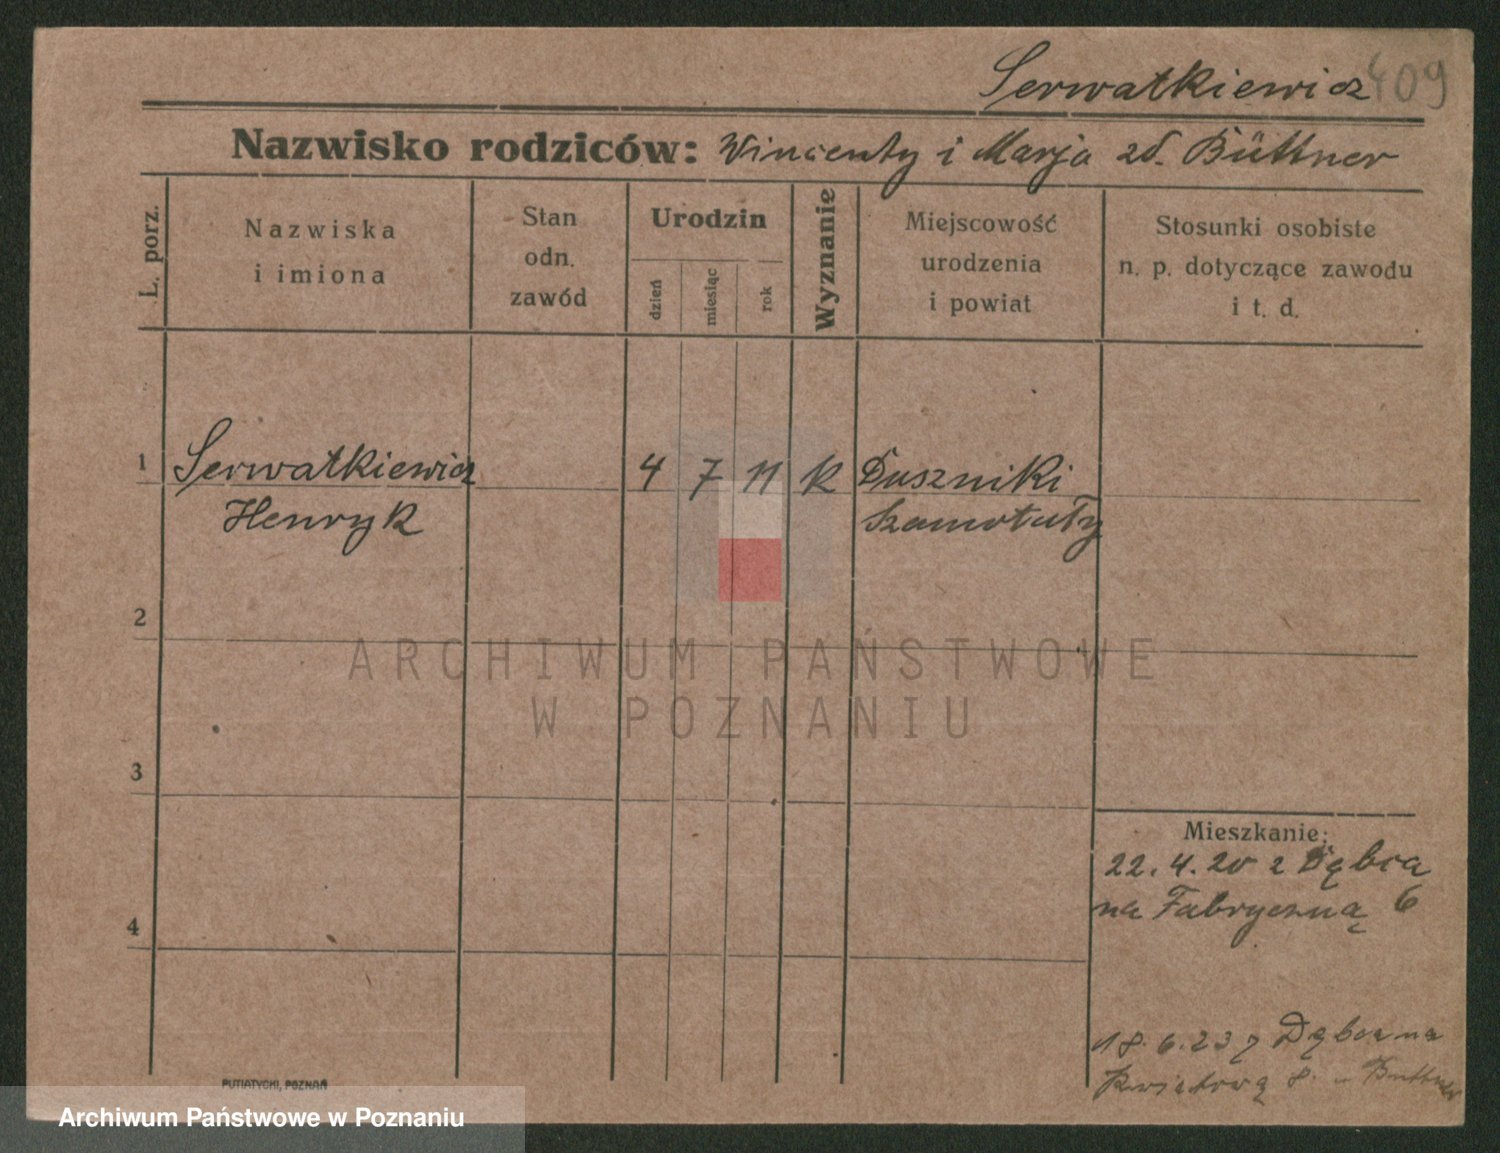 Serwatkiewicz 409
Nazwisko rodziców: Wincenty i Marja zd. Büttner
L. porz.
Nazwiska
i imiona
Stan
odn.
zawód
Urodzin
dzień
miesiąc
rok
Wyznanie
Miejscowość
urodzenia
i powiat
Stosunki osobiste
n. p. dotyczące zawodu
i t. d.
1 Serwatkiewicz 4 7 11 k Duszniki
Henryk Szamotuły
2
ARCHIWUM PAŃSTWOWE
W POZNANIU
3
Mieszkanie:
22.4.20 z Dębca
na Fabryczną 6
4
18.6.23 z Dębca na
Kwiatową 8. u Buttner
PUTIATYCKI, POZNAŃ
Archiwum Państwowe w Poznaniu